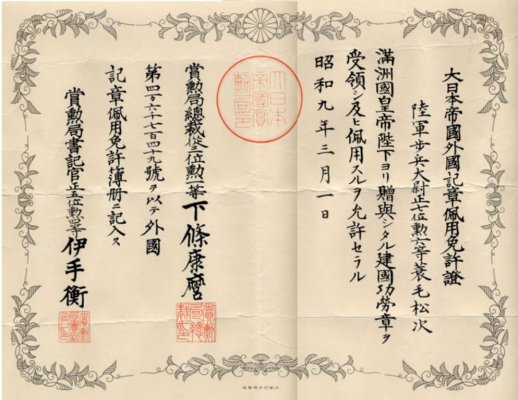 大日本帝國外國記章佩用免許證
陸軍歩兵大尉正七位勲六等蓑毛松次
滿洲國皇帝陛下ヨリ贈與シタル建國功勞章ヲ
受領シ及ヒ佩用スルヲ允許セラル
昭和九年三月一日
大日本
帝國賞
勲局印
賞勲局總裁従三位勲二等下條康麿
第四万六千七百四十九號ヲ以テ外國
記章佩用免許簿册ニ記入ス
賞勲局書記官正五位勲四等伊手衡